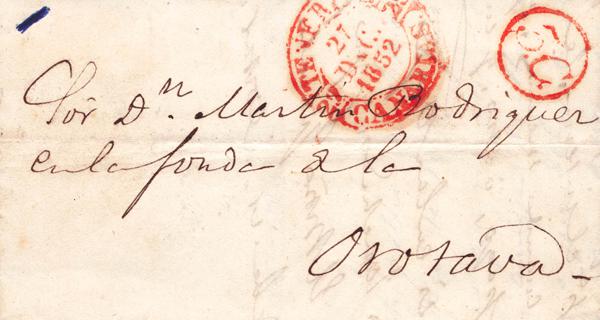 TENERIFE
27
DIC.
1852
CANARIAS
5C
Sor Dn. Martin Rodriguez
en la fonda de la
Orotava